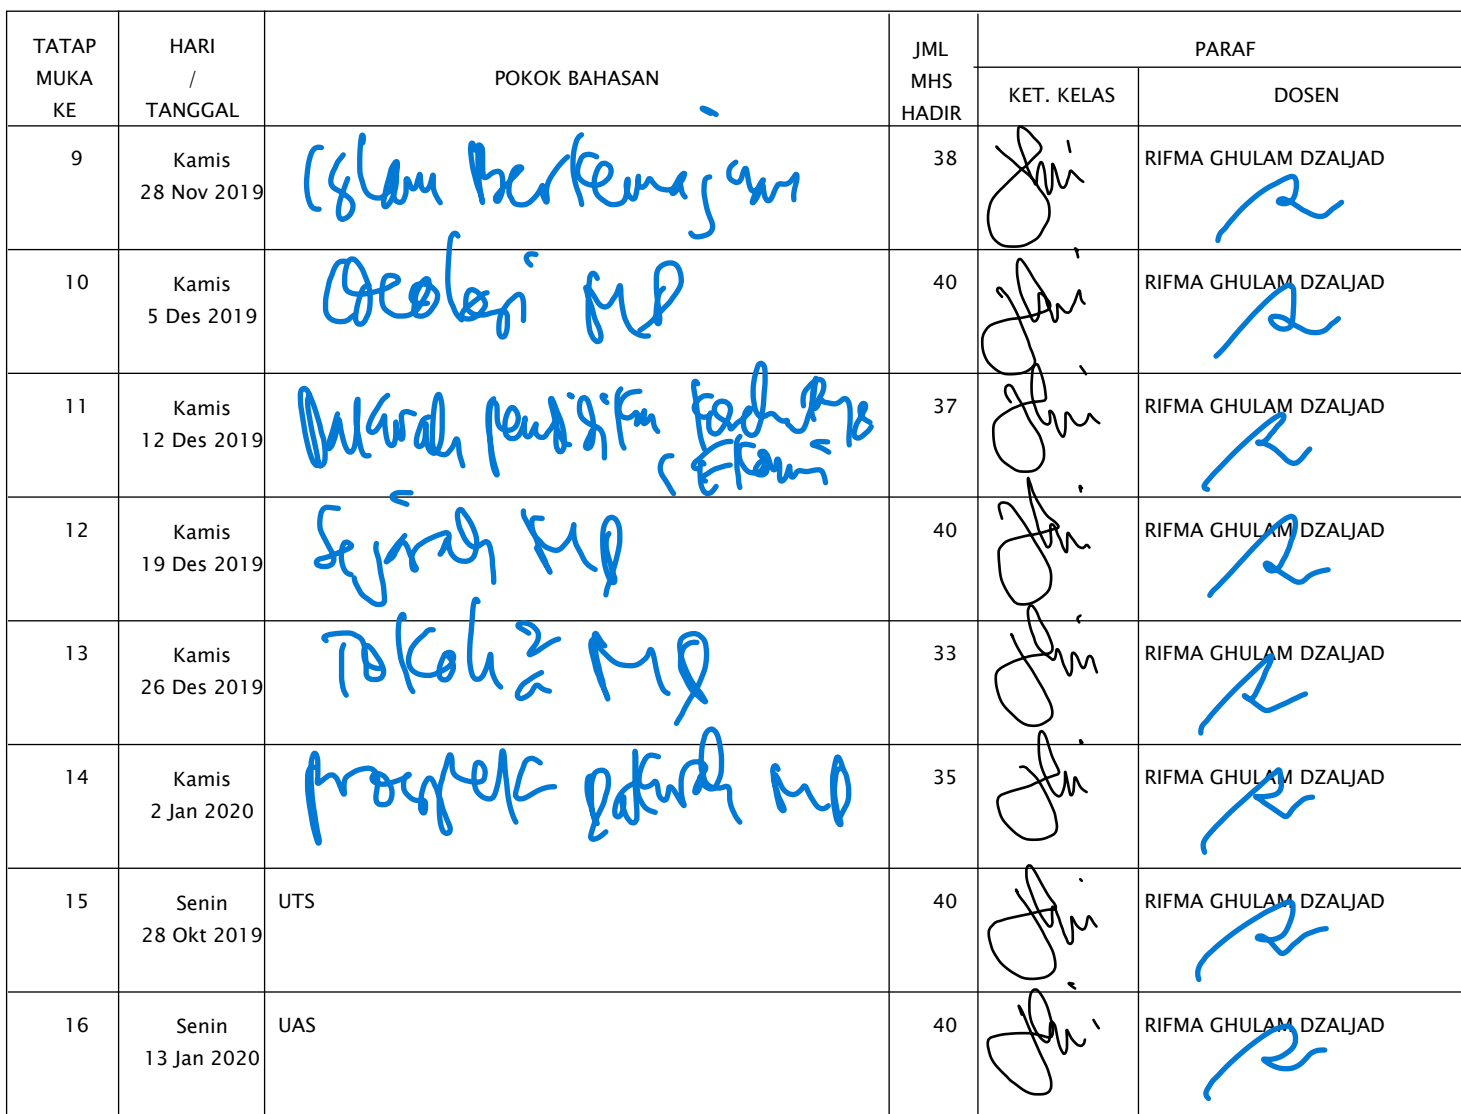 TATAP MUKA KE HARI / TANGGAL POKOK BAHASAN JML MHS HADIR PARAF
KET. KELAS DOSEN
9 Kamis 28 Nov 2019 Islam Berkemajuan 38 RIFMA GHULAM DZALJAD
10 Kamis 5 Des 2019 MD 40 RIFMA GHULAM DZALJAD
11 Kamis 12 Des 2019 Dakwah pendidikan 37 RIFMA GHULAM DZALJAD
12 Kamis 19 Des 2019 Sejarah MD 40 RIFMA GHULAM DZALJAD
13 Kamis 26 Des 2019 Tokoh2 MD 33 RIFMA GHULAM DZALJAD
14 Kamis 2 Jan 2020 prospek Dakwah MD 35 RIFMA GHULAM DZALJAD
15 Senin 28 Okt 2019 UTS 40 RIFMA GHULAM DZALJAD
16 Senin 13 Jan 2020 UAS 40 RIFMA GHULAM DZALJAD